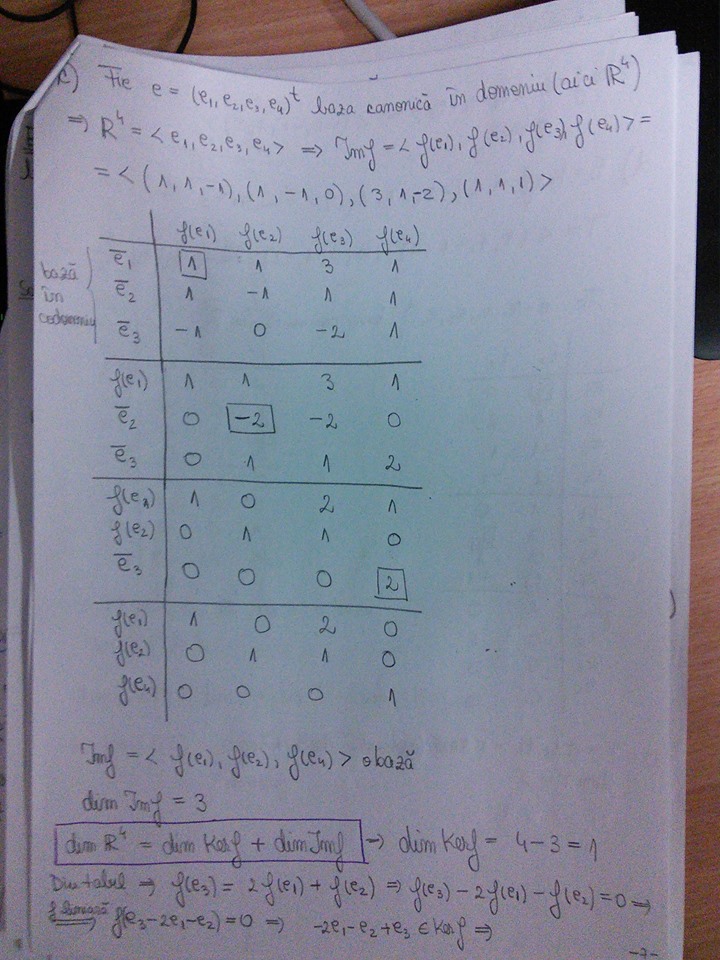 c) Fie e = (e₁, e₂, e₃, e₄)ᵗ baza canonică în domeniu (aici ℝ⁴)
⇒ ℝ⁴ = < e₁, e₂, e₃, e₄ > ⇒ Imf = < f(e₁), f(e₂), f(e₃), f(e₄) > =
= < (1, 1, -1), (1, -1, 0), (3, 1, -2), (1, 1, 1) >
f(e₁) f(e₂) f(e₃) f(e₄)
bază în codomeniu
ē₁ 1 1 3 1
ē₂ 1 -1 1 1
ē₃ -1 0 -2 1
f(e₁) 1 1 3 1
ē₂ 0 -2 -2 0
ē₃ 0 1 1 2
f(e₁) 1 0 2 1
f(e₂) 0 1 1 0
ē₃ 0 0 0 2
f(e₁) 1 0 2 0
f(e₂) 0 1 1 0
f(e₄) 0 0 0 1
Imf = < f(e₁), f(e₂), f(e₄) > bază
dim Imf = 3
dim ℝ⁴ = dim Kerf + dim Imf → dim Kerf = 4 - 3 = 1
Din tabel ⇒ f(e₃) = 2f(e₁) + f(e₂) ⇒ f(e₃) - 2f(e₁) - f(e₂) = 0 ⇒
f liniară ⇒ f(e₃ - 2e₁ - e₂) = 0 ⇒ -2e₁ - e₂ + e₃ ∈ Kerf ⇒
-7-